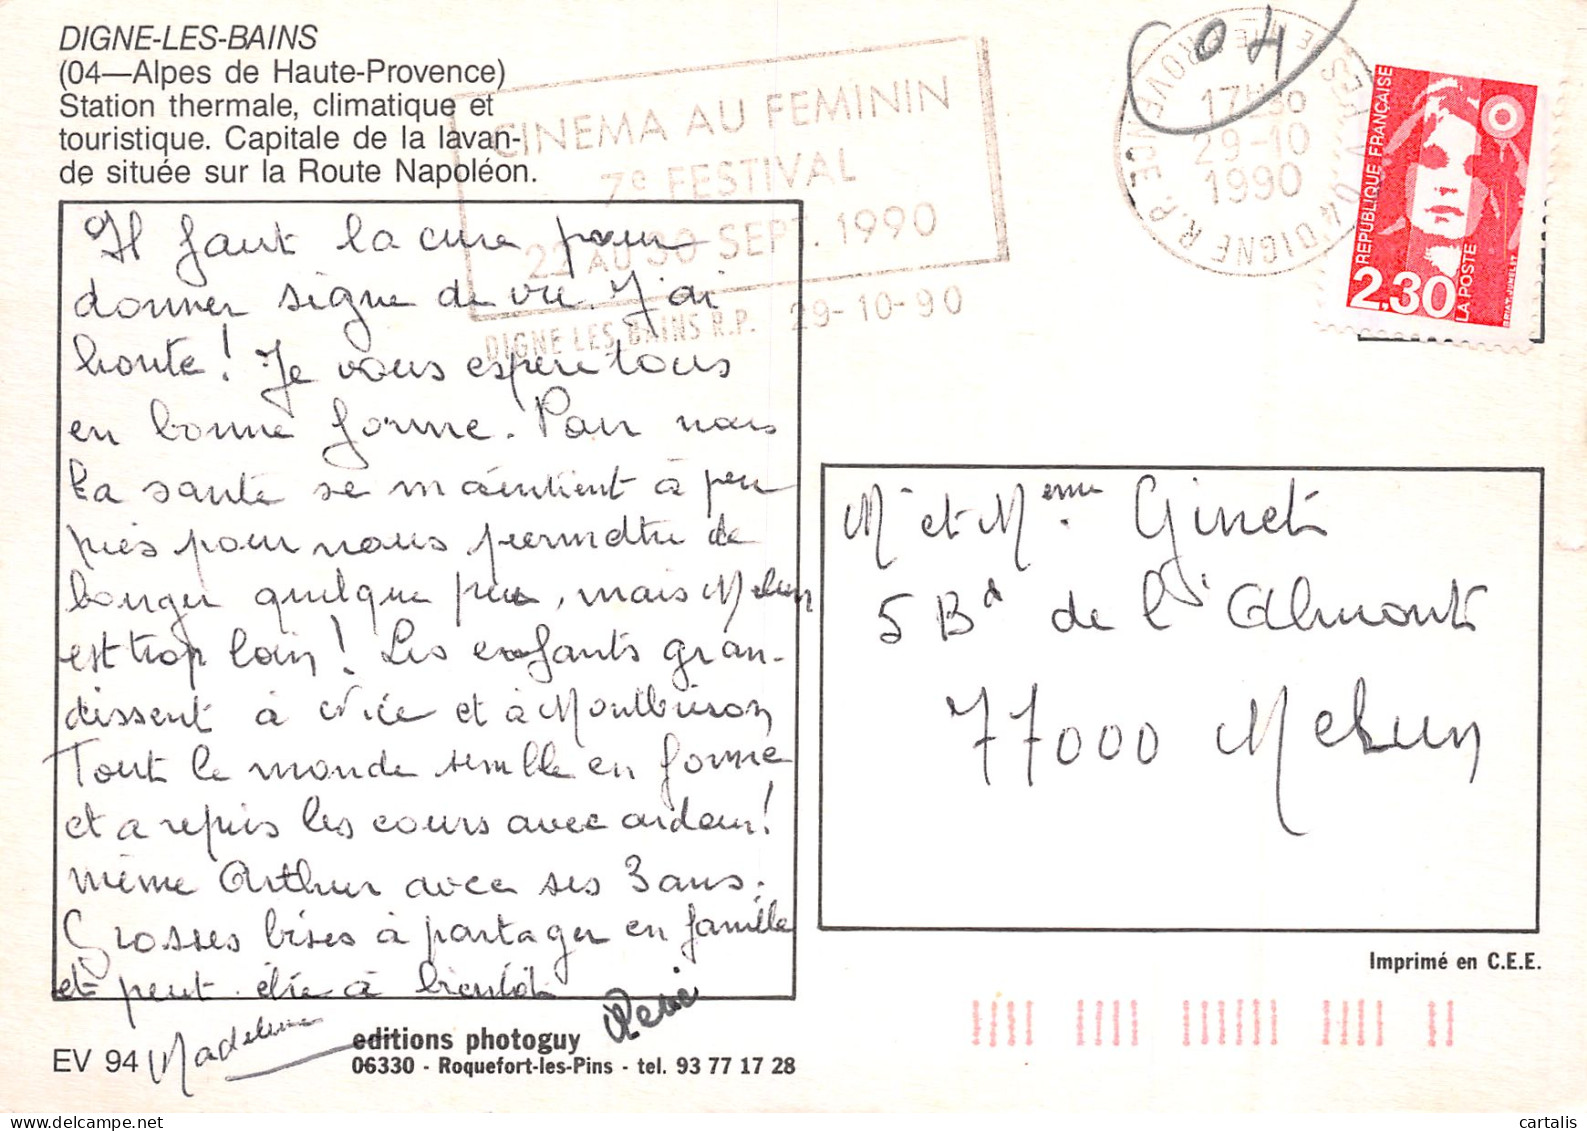 DIGNE-LES-BAINS
(04—Alpes de Haute-Provence)
Station thermale, climatique et
touristique. Capitale de la lavan-
de située sur la Route Napoléon.
CINEMA AU FEMININ
7e FESTIVAL
22 AU 30 SEPT. 1990
DIGNE LES BAINS R.P. 29-10-90
04
17h30
29-10
1990
04 DIGNE R.P.
REPUBLIQUE FRANÇAISE
2,30
LA POSTE
Il faut la cure pour
donner signe de vie. J'ai
honte! Je vous espère tous
en bonne forme. Pour nous
la santé se maintient à peu
près pour nous permettre de
bouger quelque peu, mais Melun
est trop loin! Les enfants gran-
dissent à Nice et à Montbrison
Tout le monde semble en forme
et a repris les cours avec ardeur!
même Arthur avec ses 3 ans.
Grosses bises à partager en famille
et peut-être à bientôt
Madeleine
René
Mr et Mme Ginet
5 Bd de l'Almont
77000 Melun
Imprimé en C.E.E.
EV 94
editions photoguy
06330 - Roquefort-les-Pins - tel. 93 77 17 28
cartalis